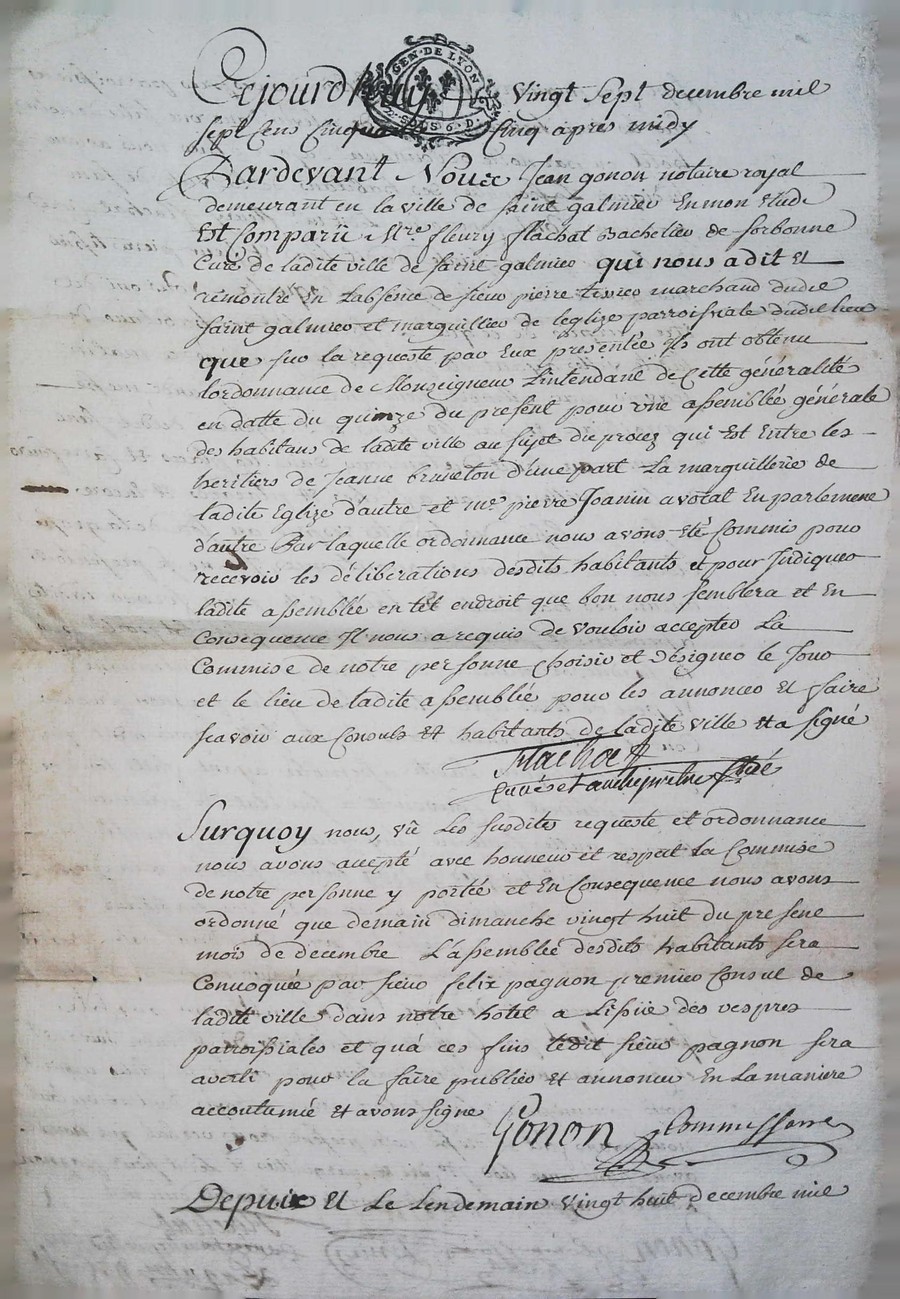 GEN. DE LYON
SOUS 6. D.
Cejourdhuy Vingt Sept decembre mil
sept Cens Cinqua Cinq apres midy
Pardevant Nous Jean gonon notaire royal
demeurant en la ville de saint galmier En mon Etude
Est Comparü Mre fleury flachat Bachelier de sorbonne
Curé de ladite ville de saint galmier qui nous a dit et
remontré En Labsence de sieur pierre marchand dudit
saint galmier et marguillier de leglize parroissiale dudit lieu
que sur la requeste par Eux presentée Ils ont obtenu
lordonnance de Monseigneur Lintendant de Cette généralité
en datte du quinze du present pour vne assemblée générale
des habitans de ladite ville au sujet du procez qui Est Entre les
heritiers de Jeanne bruneton d'une part La marguillerie de
ladite Eglize d'autre et me pierre Joanin avocat En parlement
d'autre Par laquelle ordonnance nous avons été Commis pour
recevoir les délibérations desdits habitants et pour Indiquer
ladite assemblée en tel endroit que bon nous semblera et En
Consequence Il nous a requis de vouloir accepter La
Commise de notre personne Choisir et désigner le Jour
et le lieu de ladite assemblée pour les annoncer et faire
sçavoir aux Consuls et habitants de ladite ville et a signé
Flachat
curé et
Surquoy nous, vû Les susdites requeste et ordonnance
nous avons accepté avec honneur et respect la Commise
de notre personne y portée et En Consequence nous avons
ordonné que demain dimanche vingt huit du present
mois de decembre L'assemblée desdits habitants sera
Convoquée par sieur felix pagnon premier Consul de
ladite ville dans notre hôtel a Lissüe des vespres
parroissiales et quà ces fins ledit sieur pagnon sera
averti pour la faire publier et annoncer En La maniere
accoutumée et avons signé
Gonon Commissaire
Depuis et Le Lendemain vingt huit decembre mil